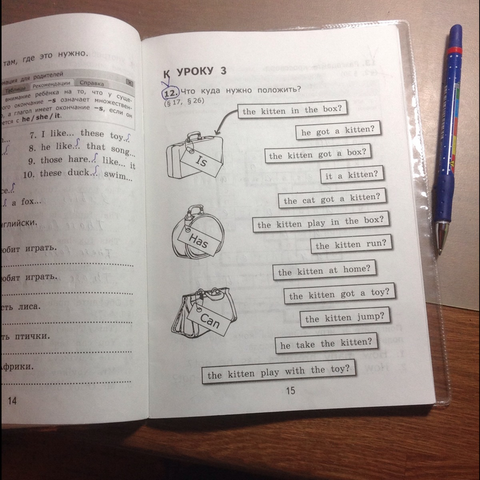 там, где это нужно.
для родителей
Таблицы Рекомендации Справка
внимание ребёнка на то, что у суще-
окончание –s означает множествен-
а глагол имеет окончание –s, если он
с he / she / it.
7. I like... these toy...
8. he like... that song...
9. those hare... like... it
10. these duck... swim...
a fox...
играть.
играть.
лиса.
птички.
14
К УРОКУ 3
12. Что куда нужно положить?
(§ 17, § 26)
the kitten in the box?
he got a kitten?
the kitten got a box?
it a kitten?
the cat got a kitten?
the kitten play in the box?
the kitten run?
the kitten at home?
the kitten got a toy?
the kitten jump?
he take the kitten?
the kitten play with the toy?
Is
Has
Can
15